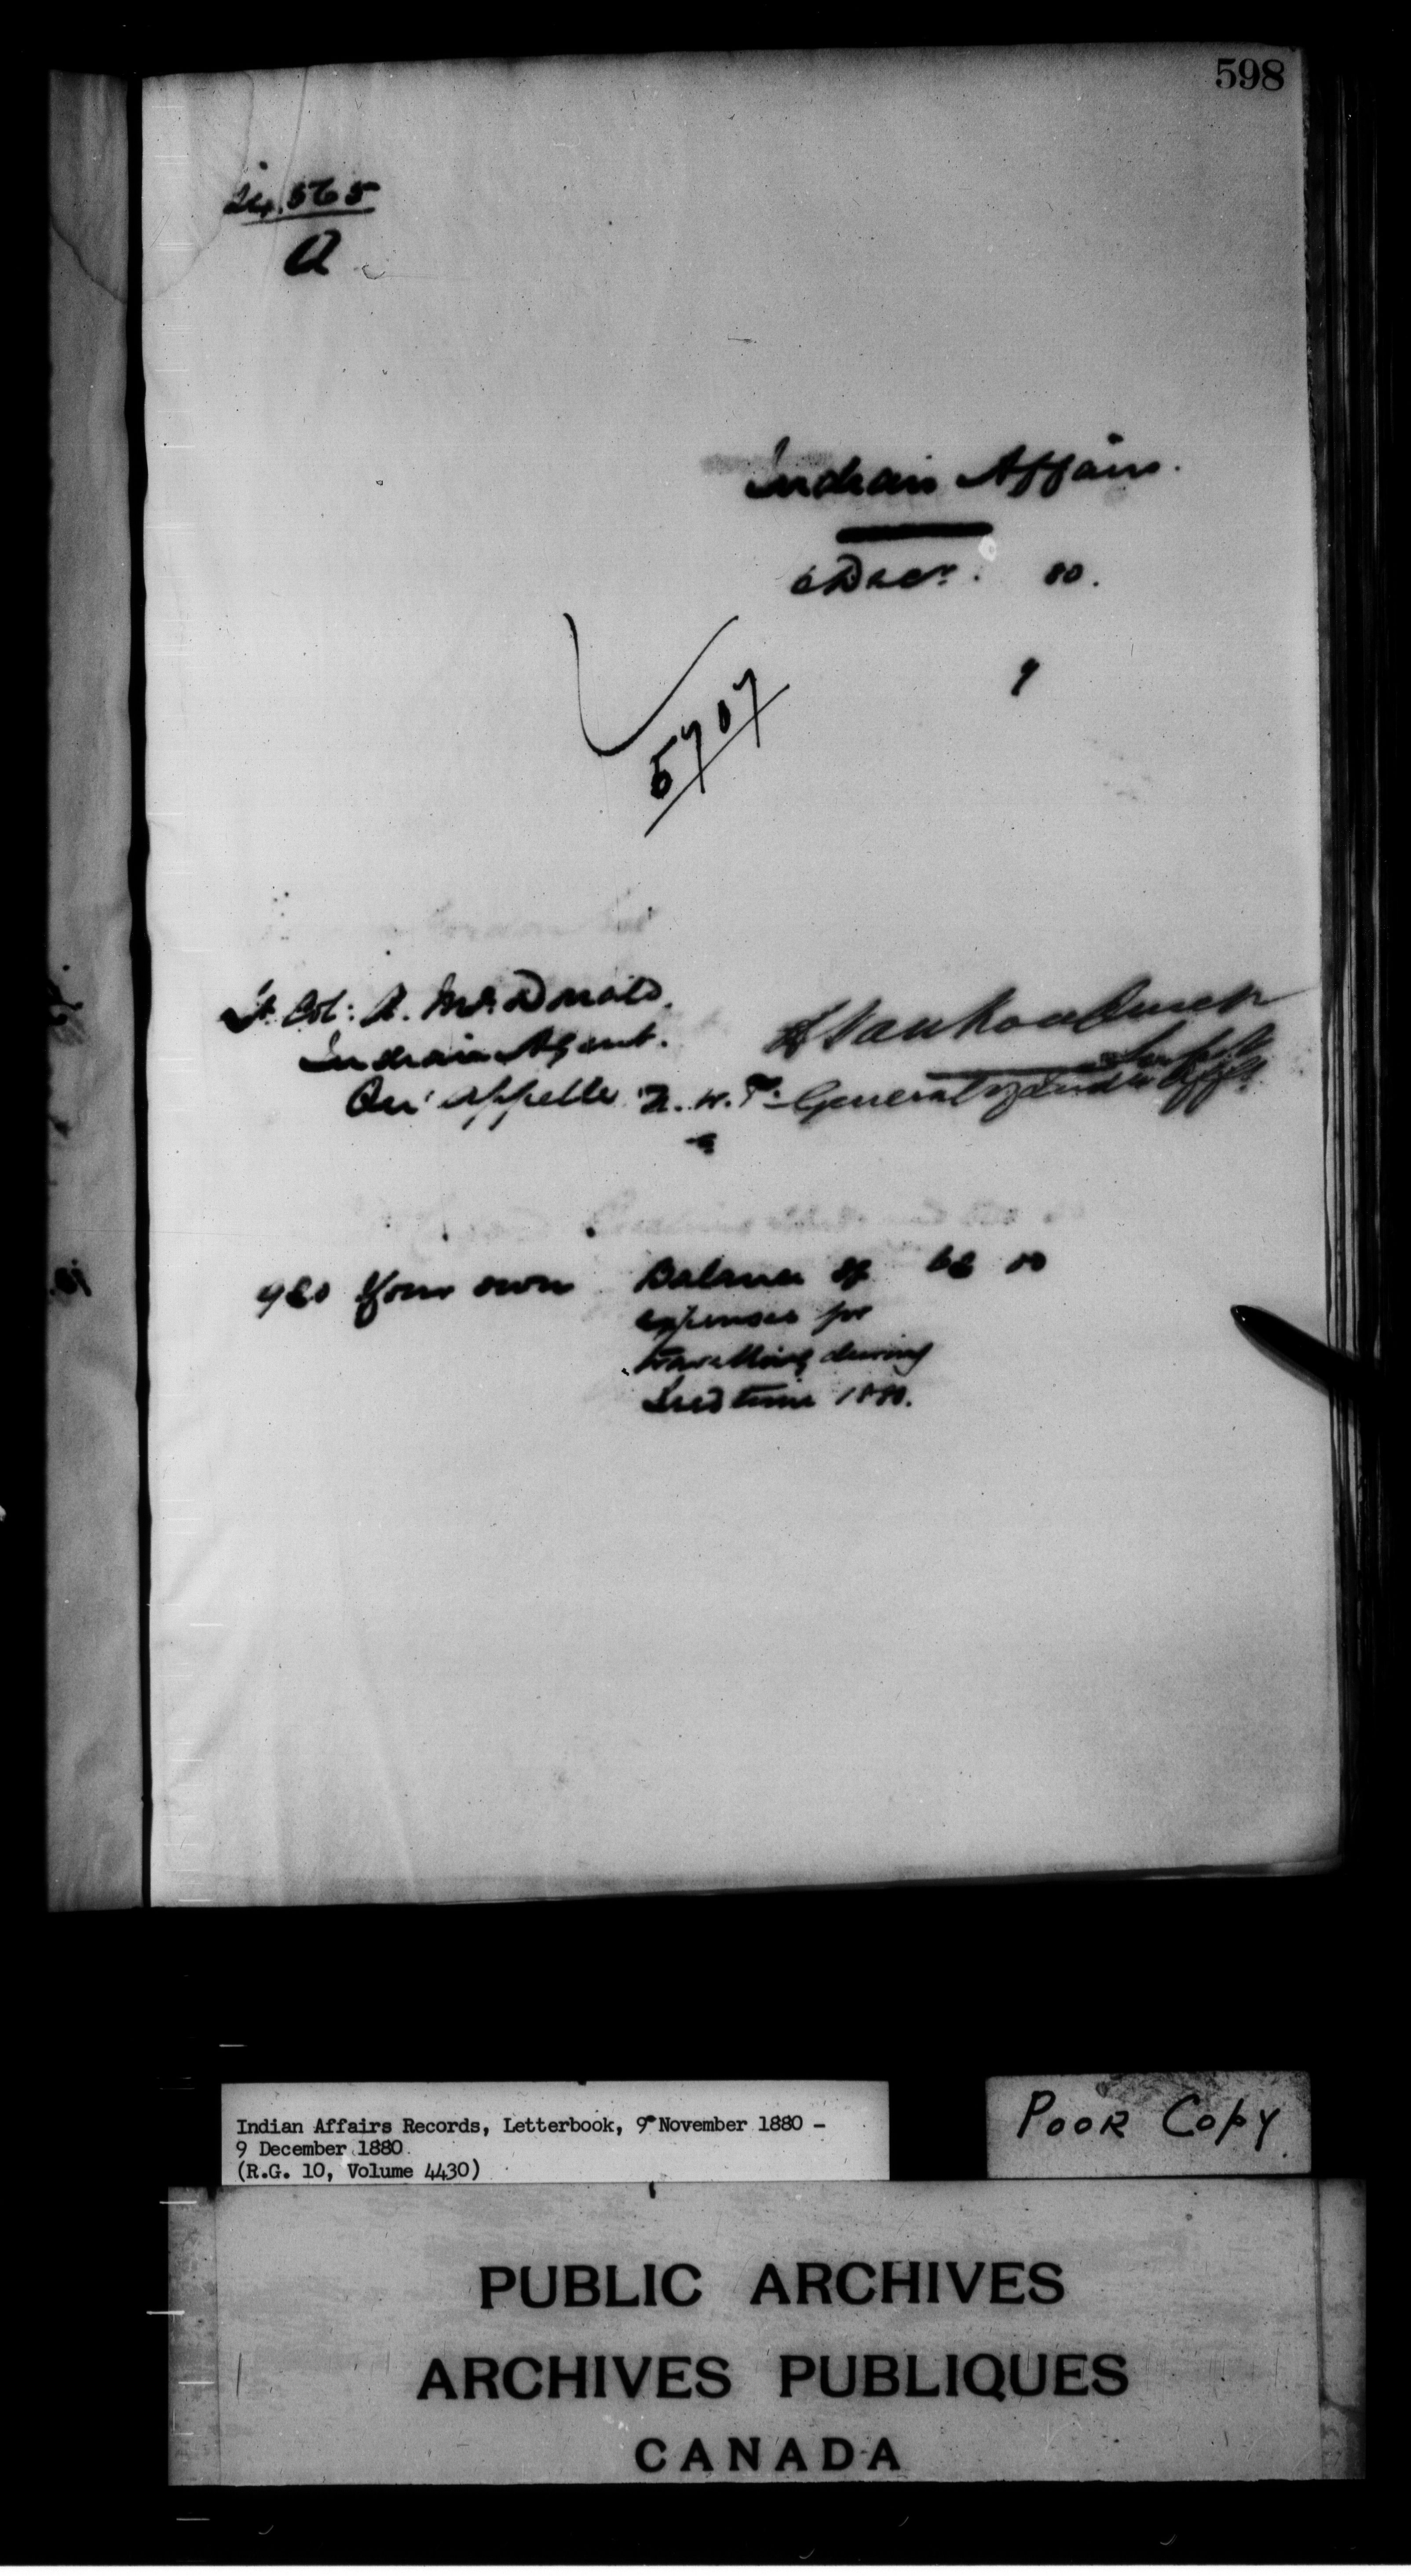 598
565
A
Indian Affairs.
6 Decr. 80.
9
5707
Lt Col: A. McDonald,
Indian Agent.
Qu'Appelle N. W. T.
L Vankoughnet
General of Indian Affs
980 Your own Balance of 62 00
expenses for
travelling during
Seed time 1880.
Indian Affairs Records, Letterbook, 9 November 1880 -
9 December 1880.
(R.G. 10, Volume 4430)
POOR COPY
PUBLIC ARCHIVES
ARCHIVES PUBLIQUES
CANADA